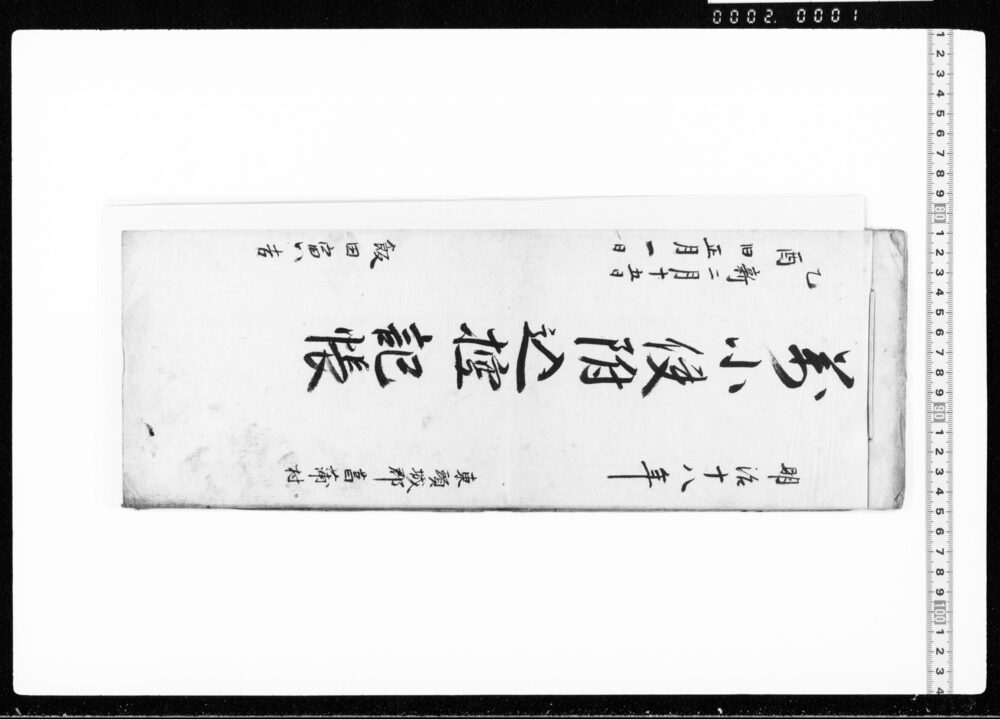 明治十八年
東頸城郡菖蒲村
萬小使附込控記帳
乙酉
新二月十五日
旧正月一日
飯田富吉
0002. 0001
1 2 3 4 5 6 7 8 9 80 1 2 3 4 5 6 7 8 9 90 1 2 3 4 5 6 7 8 9 100 1 2 3 4